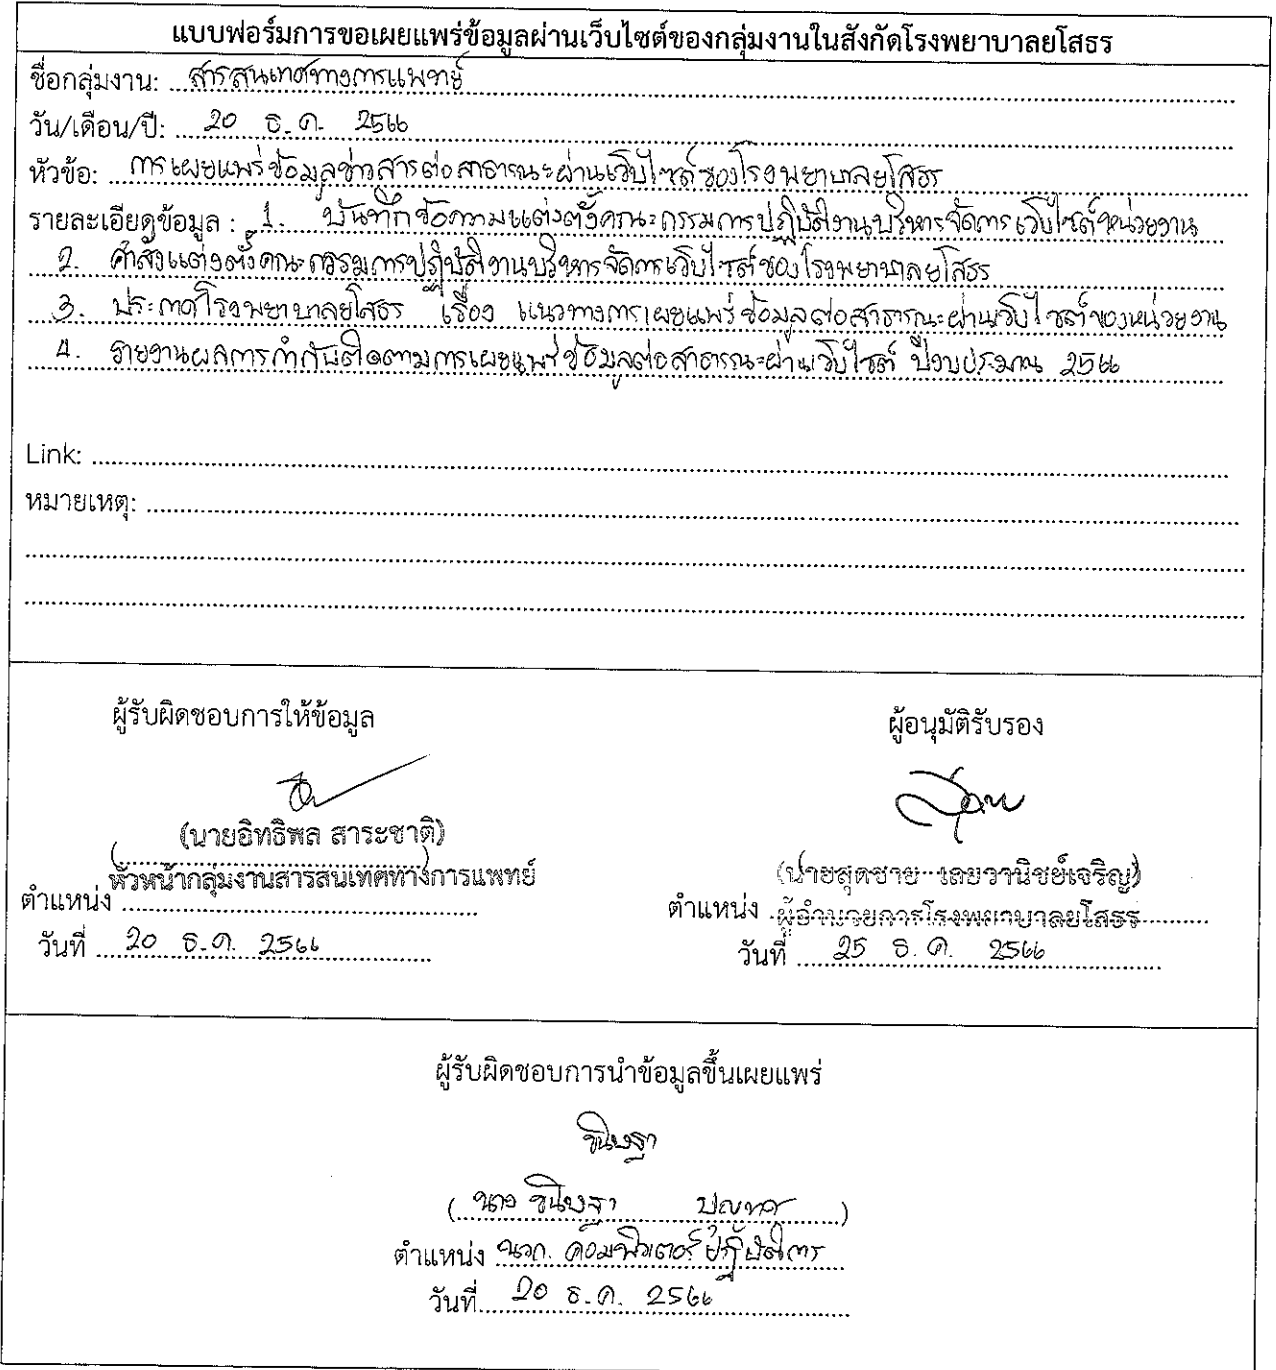 แบบฟอร์มการขอเผยแพร่ข้อมูลผ่านเว็บไซต์ของกลุ่มงานในสังกัดโรงพยาบาลยโสธร
ชื่อกลุ่มงาน: สารสนเทศทางการแพทย์
วัน/เดือน/ปี: 20 ธ.ค. 2566
หัวข้อ: การเผยแพร่ข้อมูลข่าวสารต่อสาธารณะผ่านเว็บไซต์ของโรงพยาบาลยโสธร
รายละเอียดข้อมูล : 1. บันทึกข้อความแต่งตั้งคณะกรรมการปฏิบัติงานบริหารจัดการเว็บไซต์หน่วยงาน
2. คำสั่งแต่งตั้งคณะกรรมการปฏิบัติงานบริหารจัดการเว็บไซต์ของโรงพยาบาลยโสธร
3. ประกาศโรงพยาบาลยโสธร เรื่อง แนวทางการเผยแพร่ข้อมูลต่อสาธารณะผ่านเว็บไซต์ของหน่วยงาน
4. รายงานผลการกำกับติดตามการเผยแพร่ข้อมูลต่อสาธารณะผ่านเว็บไซต์ ปีงบประมาน 2566
Link:
หมายเหตุ:
ผู้รับผิดชอบการให้ข้อมูล
(นายอิทธิพล สาระชาติ)
หัวหน้ากลุ่มงานสารสนเทศทางการแพทย์
ตำแหน่ง
วันที่ 20 ธ.ค. 2566
ผู้อนุมัติรับรอง
(นายสุดชาย เลยวานิชย์เจริญ)
ตำแหน่ง ผู้อำนวยการโรงพยาบาลยโสธร
วันที่ 25 ธ.ค. 2566
ผู้รับผิดชอบการนำข้อมูลขึ้นเผยแพร่
ขนิษฐา
( นาง ขนิษฐา )
ตำแหน่ง นวก. คอมพิวเตอร์ปฏิบัติการ
วันที่ 20 ธ.ค. 2566